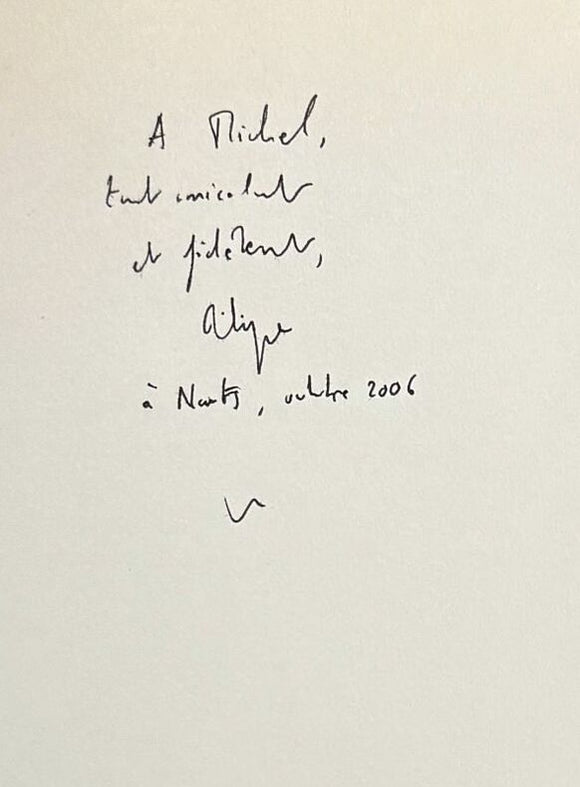 A Michel,
tout amicalement
et fidèlement,
à Nantes, octobre 2006